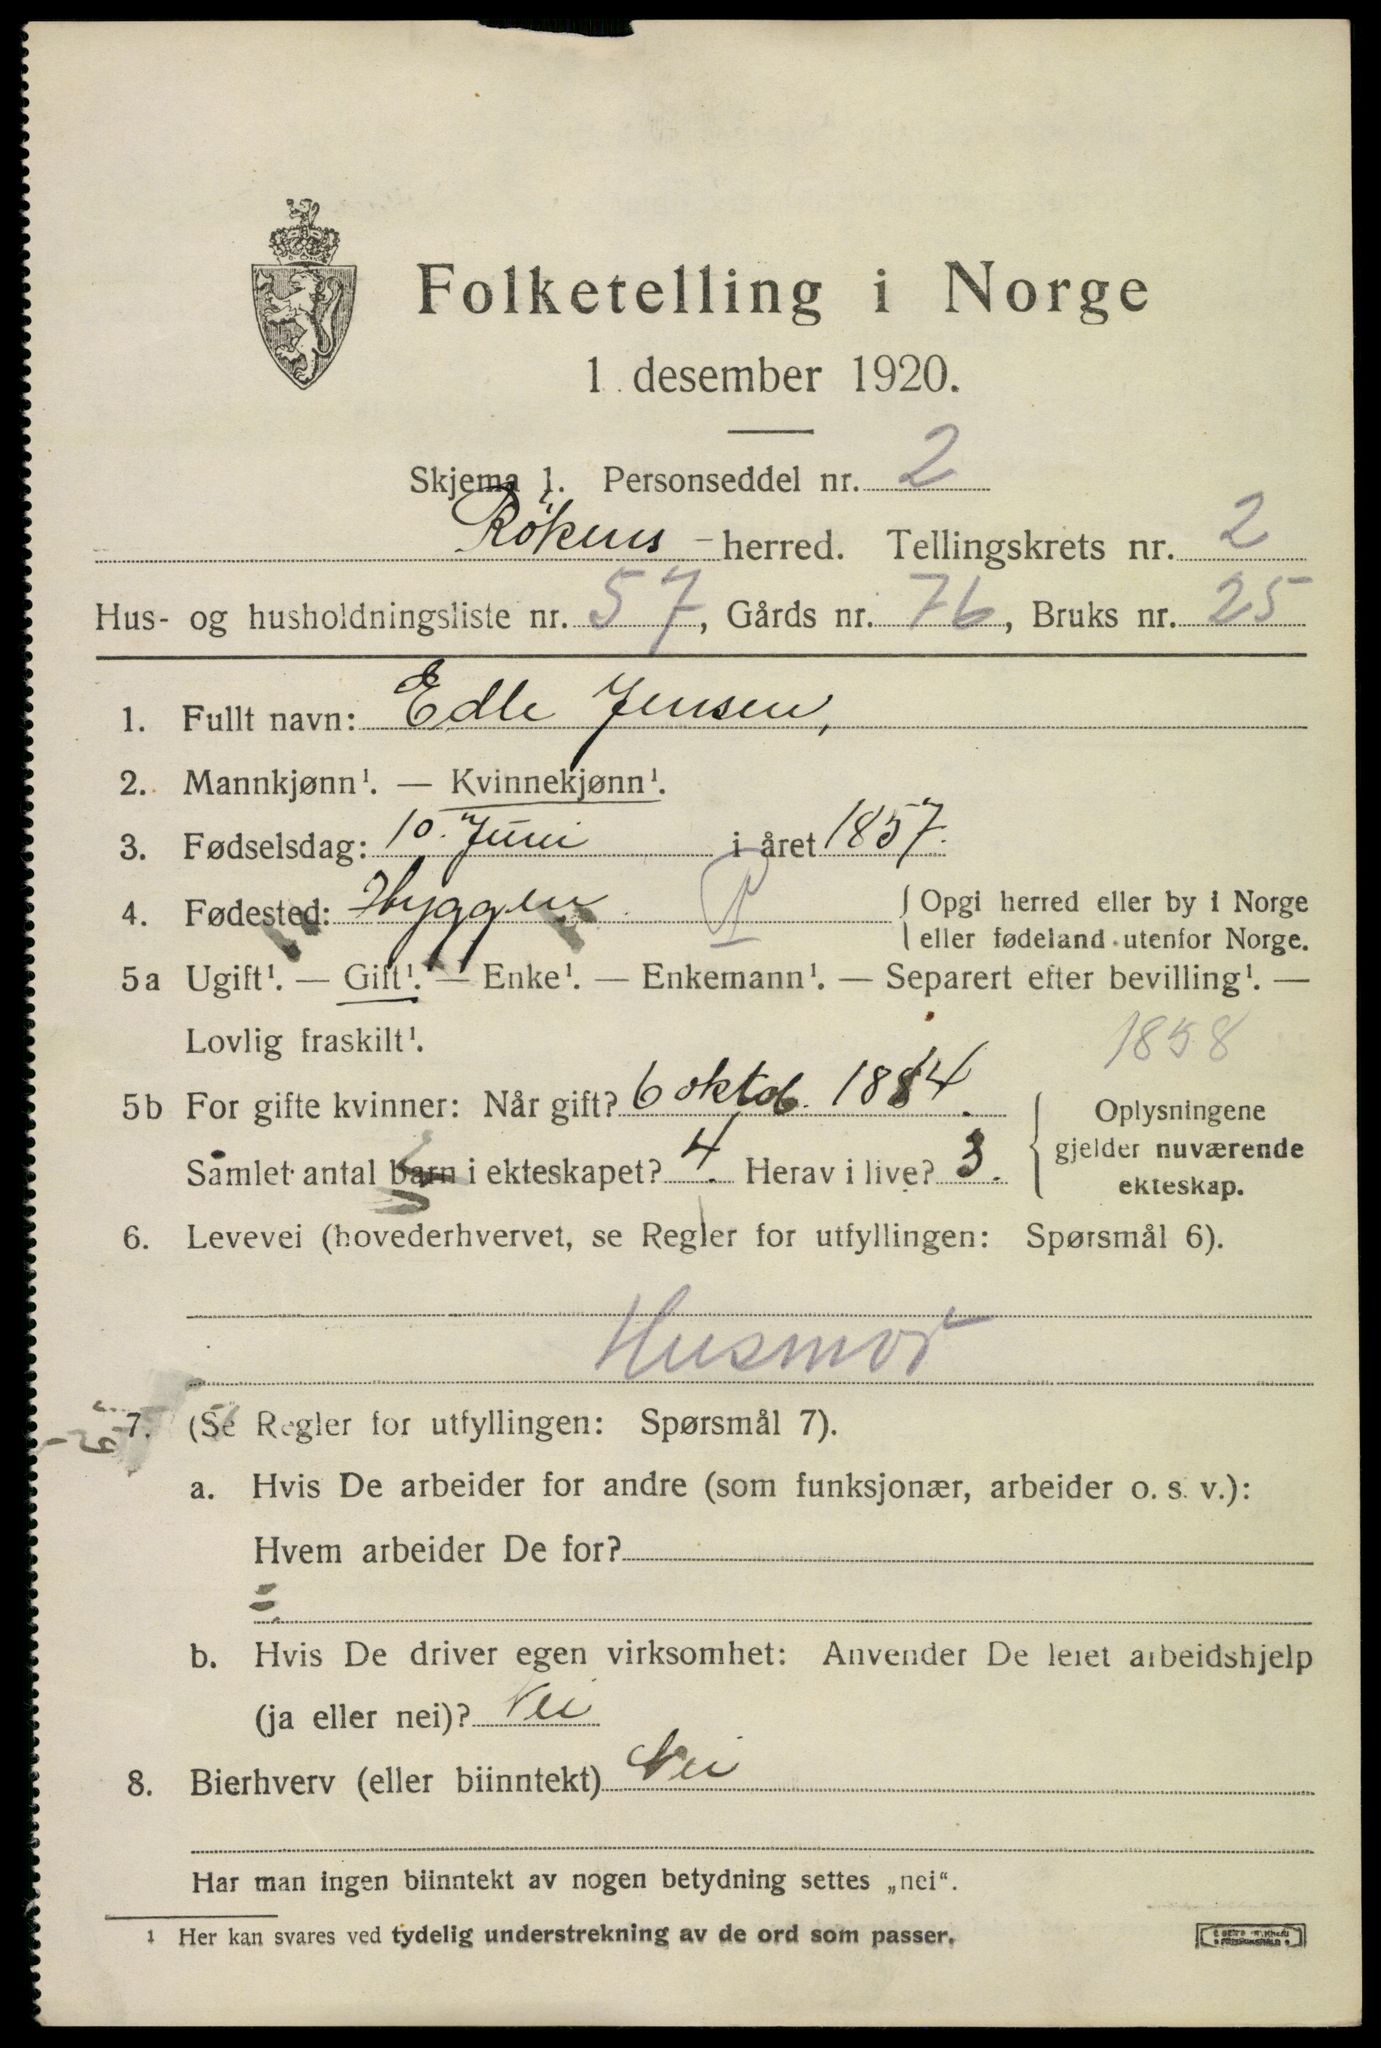 Folketelling i Norge
1. desember 1920.
Skjema 1. Personseddel nr. 2
Rökens -herred. Tellingskrets nr. 2
Hus- og husholdningsliste nr. 57, Gårds nr. 76, Bruks nr. 25
1. Fullt navn: Edle Jensen,
2. Mannkjønn¹. — Kvinnekjønn¹.
3. Fødselsdag: 10. Juni i året 1857.
4. Fødested: Hyggen { Opgi herred eller by i Norge
eller fødeland utenfor Norge.
5a Ugift¹. — Gift¹. — Enke¹. — Enkemann¹. — Separert efter bevilling¹. —
Lovlig fraskilt¹.
1858
5b For gifte kvinner: Når gift? 6 oktob. 1884. { Oplysningene
gjelder nuværende
ekteskap.
Samlet antal barn i ekteskapet? 4. Herav i live? 3.
6. Levevei (hovederhvervet, se Regler for utfyllingen: Spørsmål 6).
Husmor
7. (Se Regler for utfyllingen: Spørsmål 7).
a. Hvis De arbeider for andre (som funksjonær, arbeider o. s. v.):
Hvem arbeider De for?
b. Hvis De driver egen virksomhet: Anvender De leiet arbeidshjelp
(ja eller nei)? Nei
8. Bierhverv (eller biinntekt) Nei
Har man ingen biinntekt av nogen betydning settes „nei“.
¹ Her kan svares ved tydelig understrekning av de ord som passer.